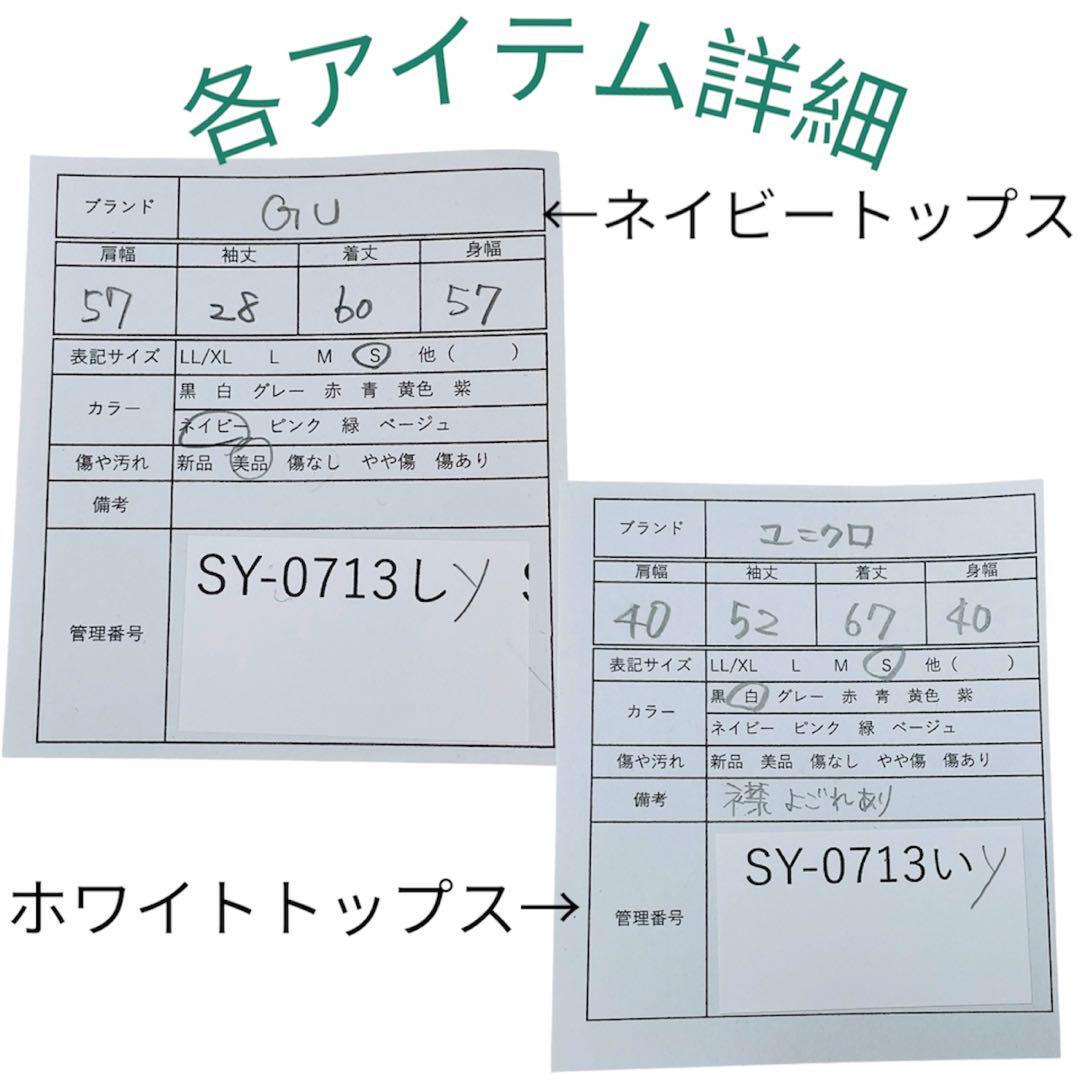 各アイテム詳細
ブランド GU
←ネイビートップス
肩幅 袖丈 着丈 身幅
57 28 60 57
表記サイズ LL/XL L M S 他( )
カラー 黒 白 グレー 赤 青 黄色 紫
ネイビー ピンク 緑 ベージュ
傷や汚れ 新品 美品 傷なし やや傷 傷あり
備考
管理番号 SY-0713しy
ブランド ユニクロ
肩幅 袖丈 着丈 身幅
40 52 67 40
表記サイズ LL/XL L M S 他( )
カラー 黒 白 グレー 赤 青 黄色 紫
ネイビー ピンク 緑 ベージュ
傷や汚れ 新品 美品 傷なし やや傷 傷あり
備考 襟よごれあり
管理番号 SY-0713いy
ホワイトトップス→